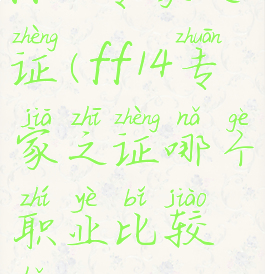 zhèng zhuān
证(ff14专
jiā zhī zhèng nǎ gè
家之证哪个
zhí yè bǐ jiào
职业比较